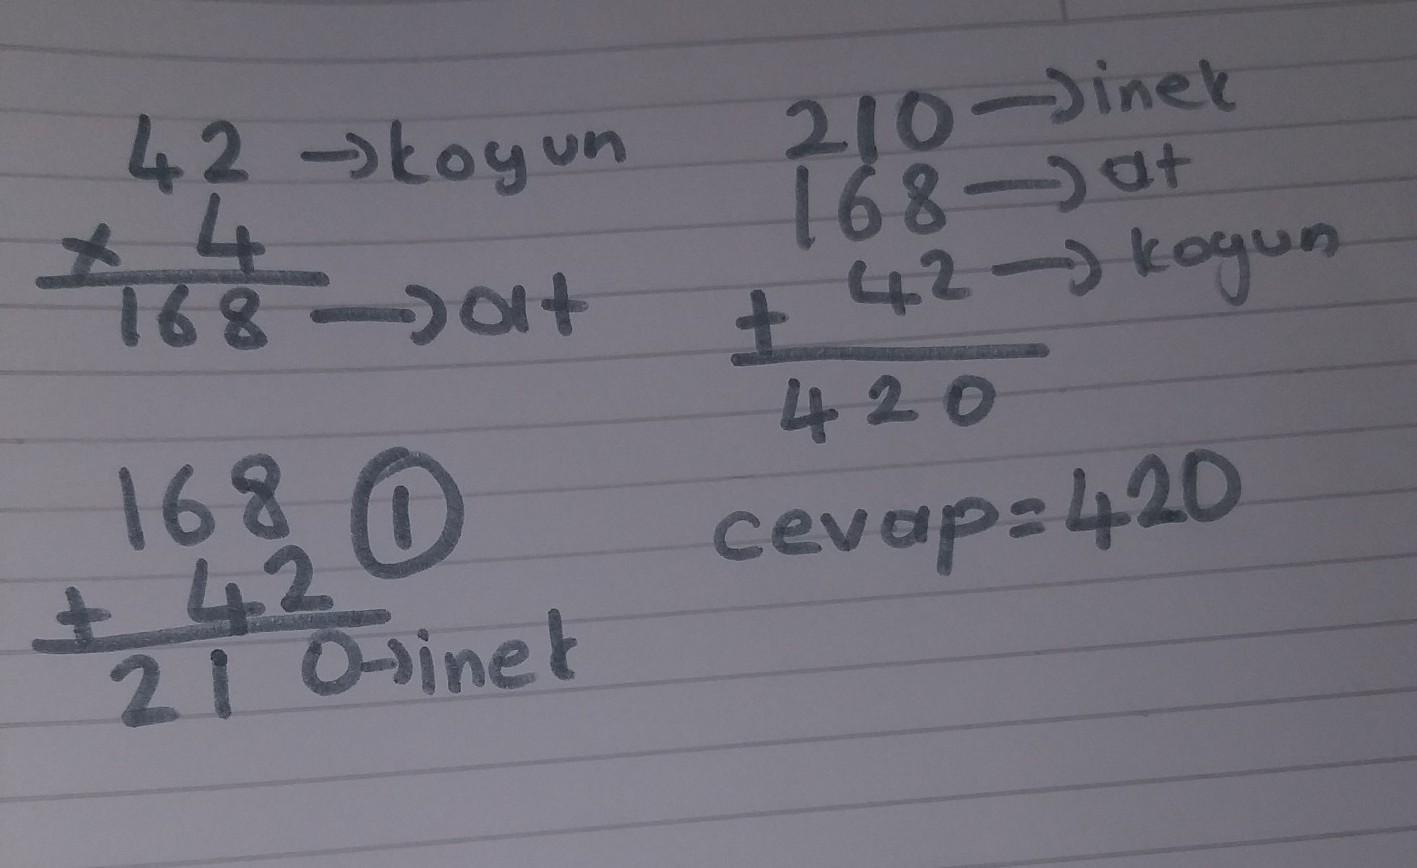 42 →koyun
x 4
168 →at
168 ①
+ 42
210→inek
210 →inek
168 →at
+ 42 →koyun
420
cevap=420